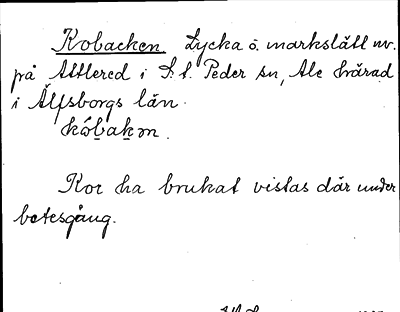 Kobacken. Lycka o. markslätt nv.
på Attlered i S:t Peder sn, Ale härad
i Älfsborgs län.
kóbakɷn.
Kor ha brukat vistas där under
betesgång.